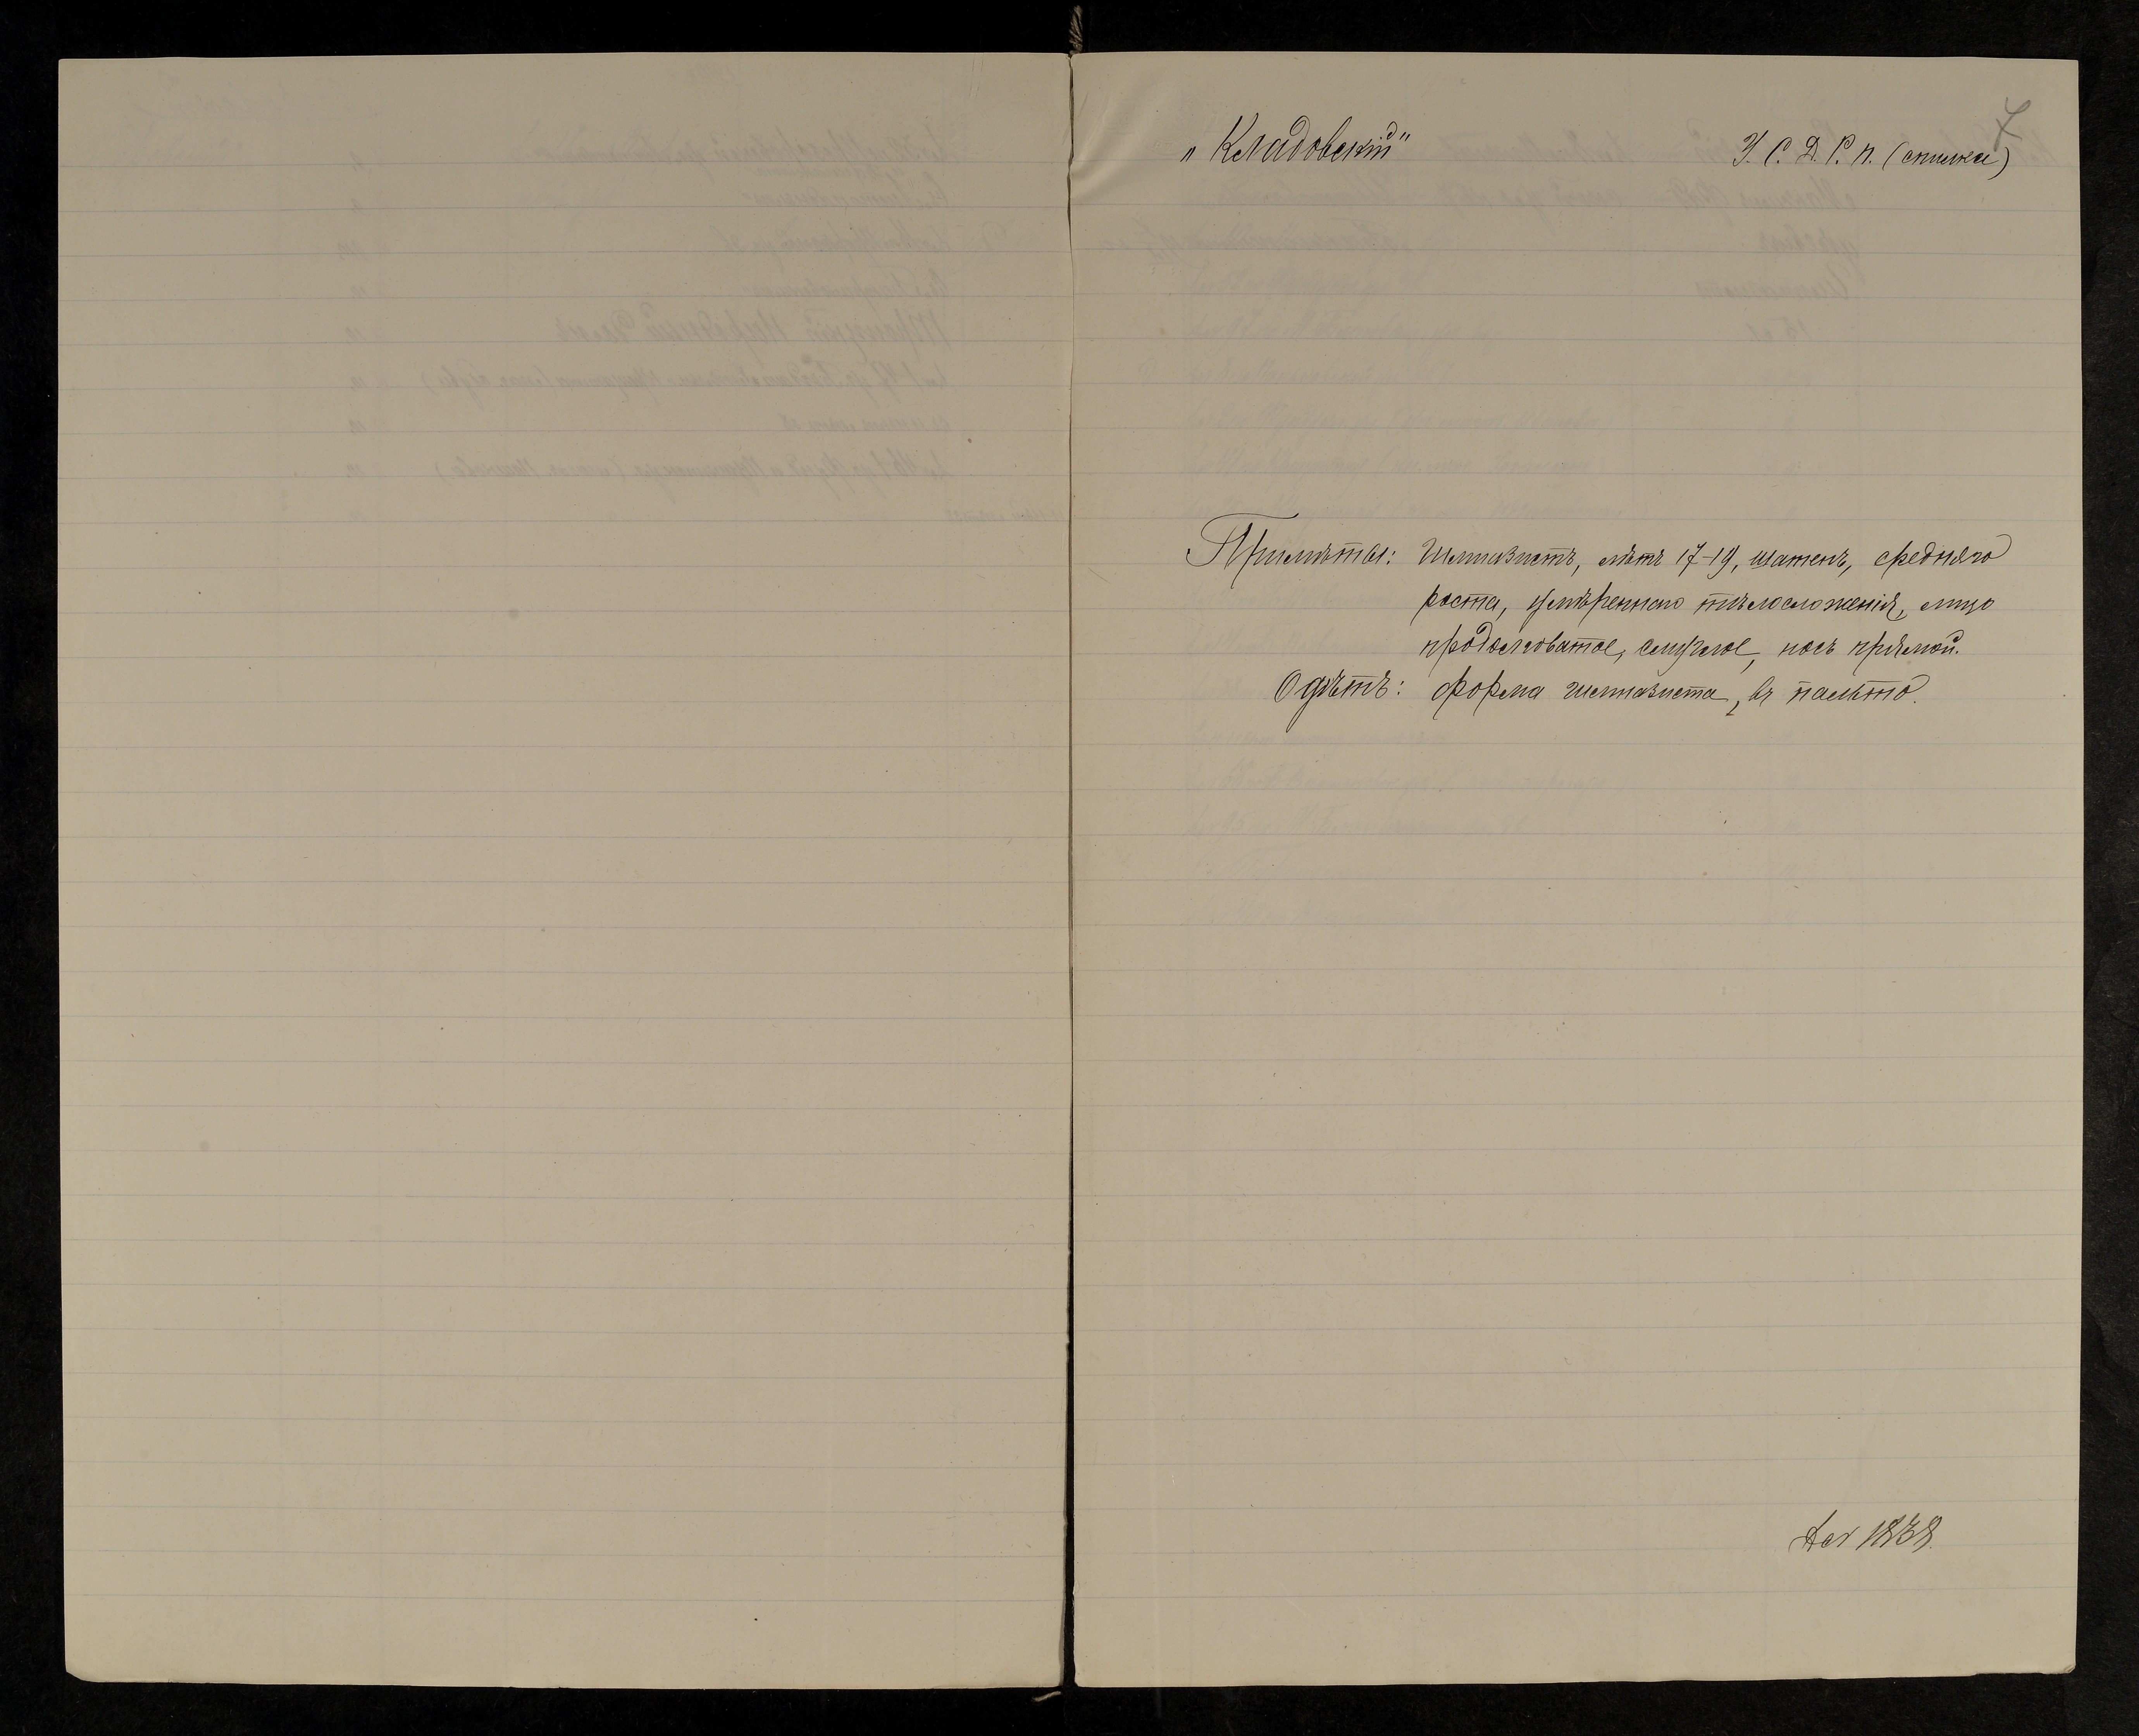 7
„Кладовскій“
У. С. Д. Р. П. (спилка)
Примѣты: Гимназистъ, лѣтъ 17-19, шатенъ, средняго
роста, умѣреннаго тѣлосложенія, лицо
продолговатое, смуглое, носъ прямой.
Одѣтъ: форма гимназиста, въ пальто.